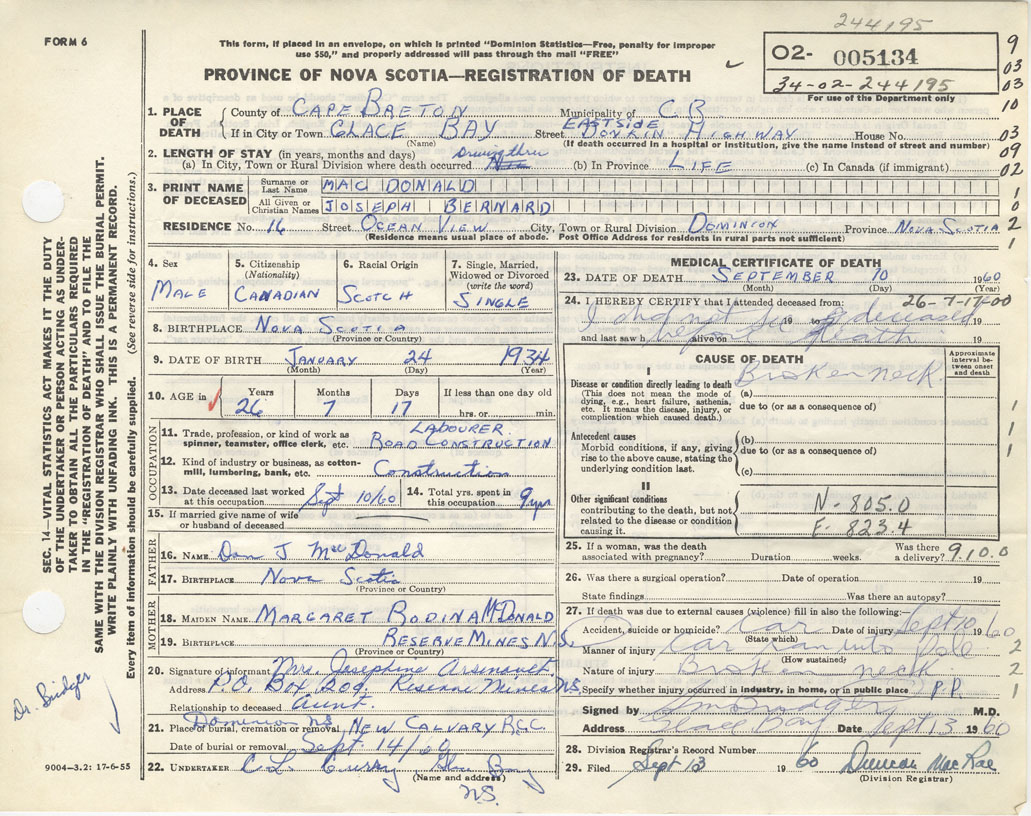 244195
FORM 6
This form, if placed in an envelope, on which is printed "Dominion Statistics—Free, penalty for improper
use $50," and properly addressed will pass through the mail "FREE"
PROVINCE OF NOVA SCOTIA—REGISTRATION OF DEATH
O2- 005134
34-02-244195
For use of the Department only
9
03
03
10
03
09
02
1
0
2
1
1. PLACE OF DEATH
County of CAPE BRETON Municipality of C.B.
If in City or Town GLACE BAY Street EASTSIDE DONKIN HIGHWAY House No.
(Name) (If death occurred in a hospital or institution, give the name instead of street and number)
2. LENGTH OF STAY (in years, months and days)
(a) In City, Town or Rural Division where death occurred Driving thru (b) In Province LIFE (c) In Canada (if immigrant)
3. PRINT NAME OF DECEASED
Surname or Last Name MAC DONALD
All Given or Christian Names JOSEPH BERNARD
RESIDENCE No. 16 Street OCEAN VIEW City, Town or Rural Division DOMINION Province NOVA SCOTIA
(Residence means usual place of abode. Post Office Address for residents in rural parts not sufficient)
4. Sex MALE
5. Citizenship (Nationality) CANADIAN
6. Racial Origin SCOTCH
7. Single, Married, Widowed or Divorced (write the word) SINGLE
8. BIRTHPLACE NOVA SCOTIA
(Province or Country)
9. DATE OF BIRTH JANUARY 24 1934
(Month) (Day) (Year)
10. AGE in Years Months Days If less than one day
26 7 17 hrs. or min.
OCCUPATION
11. Trade, profession, or kind of work as spinner, teamster, office clerk, etc. LABOURER. ROAD CONSTRUCTION
12. Kind of industry or business, as cotton-mill, lumbering, bank, etc. Construction
13. Date deceased last worked at this occupation Sept 10/60
14. Total yrs. spent in this occupation 9 yrs
15. If married give name of wife or husband of deceased
FATHER
16. NAME Dan J MacDonald
17. BIRTHPLACE Nova Scotia
(Province or Country)
MOTHER
18. MAIDEN NAME MARGARET BODINA McDONALD
19. BIRTHPLACE RESERVE MINES N.S.
(Province or Country)
20. Signature of informant Mrs. Josephine
Address P.O. Box 209, Reserve Mines N.S.
Relationship to deceased aunt.
21. Place of burial, cremation or removal Dominion NS NEW CALVARY R.C.C
Date of burial or removal Sept. 14/60
22. UNDERTAKER C.L. Curry Glace Bay
(Name and address)
N.S.
MEDICAL CERTIFICATE OF DEATH
23. DATE OF DEATH SEPTEMBER 10 1960
(Month) (Day) (Year)
24. I HEREBY CERTIFY that I attended deceased from: 26-7-17-00
I did not see deceased 19 to 19
and last saw h before death alive on 19
CAUSE OF DEATH
Approximate interval between onset and death
I
Disease or condition directly leading to death (a) Broken neck.
(This does not mean the mode of dying, e.g., heart failure, asthenia, etc. It means the disease, injury, or complication which caused death.)
due to (or as a consequence of)
Antecedent causes
Morbid conditions, if any, giving rise to the above cause, stating the underlying condition last.
(b)
due to (or as a consequence of)
(c)
II
Other significant conditions contributing to the death, but not related to the disease or condition causing it.
N-805.0
E-823.4
1
1
1
25. If a woman, was the death associated with pregnancy? Duration weeks. Was there a delivery? 9.1.0.0
26. Was there a surgical operation? Date of operation 19
State findings Was there an autopsy?
27. If death was due to external causes (violence) fill in also the following:—
Accident, suicide or homicide? Car Date of injury Sept 10 1960
(State which)
Manner of injury Car ran into Pole
(How sustained)
Nature of injury Broken neck
Specify whether injury occurred in industry, in home, or in public place P.P.
2
2
1
Signed by M.D.
Address Glace Bay Date Sept 13 1960
28. Division Registrar's Record Number
29. Filed Sept 13 1960 Duncan MacRae
(Division Registrar)
SEC. 14—VITAL STATISTICS ACT MAKES IT THE DUTY
OF THE UNDERTAKER OR PERSON ACTING AS UNDER-
TAKER TO OBTAIN ALL THE PARTICULARS REQUIRED
IN THE "REGISTRATION OF DEATH" AND TO FILE THE
SAME WITH THE DIVISION REGISTRAR WHO SHALL ISSUE THE BURIAL PERMIT.
WRITE PLAINLY WITH UNFADING INK. THIS IS A PERMANENT RECORD.
Every item of information should be carefully supplied. (See reverse side for instructions.)
Dr. Bridger
9004—3.2: 17-6-55